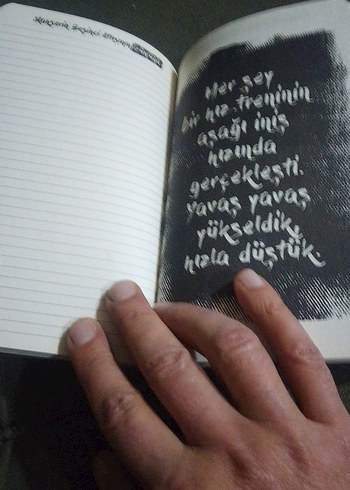 Her şey
bir hız treninin
aşağı iniş
hızında
gerçekleşti.
Yavaş yavaş
yükseldik,
hızla düştük.